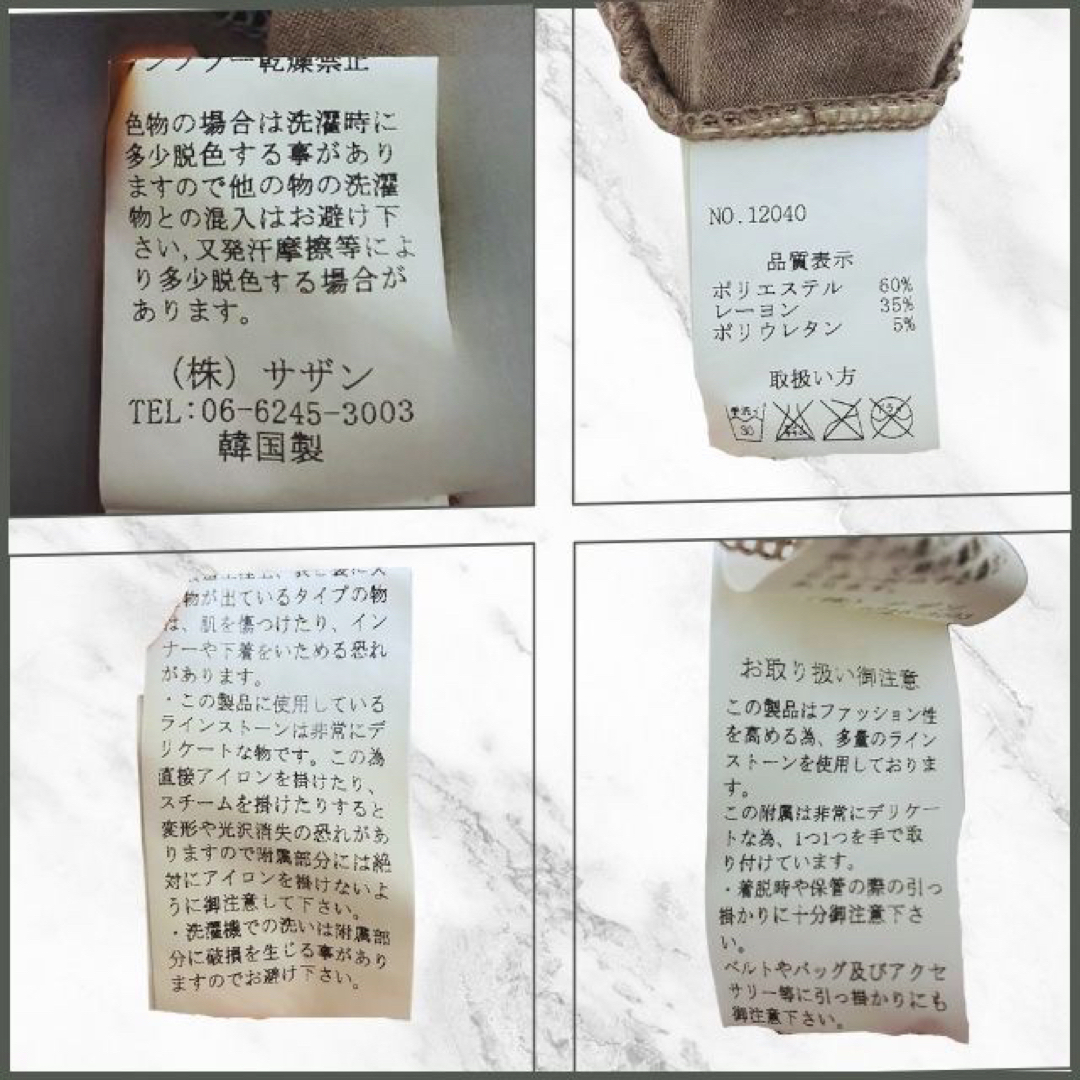 タンブラー乾燥禁止
色物の場合は洗濯時に
多少脱色する事があり
ますので他の物の洗濯
物との混入はお避け下
さい,又発汗摩擦等によ
り多少脱色する場合が
あります。
(株) サザン
TEL:06-6245-3003
韓国製
NO.12040
品質表示
ポリエステル 60%
レーヨン 35%
ポリウレタン 5%
取扱い方
30
物が出ているタイプの物
は、肌を傷つけたり、イン
ナーや下着をいためる恐れ
があります。
・この製品に使用している
ラインストーンは非常にデ
リケートな物です。この為
直接アイロンを掛けたり、
スチームを掛けたりすると
変形や光沢消失の恐れがあ
りますので附属部分には絶
対にアイロンを掛けないよ
うに御注意して下さい。
・洗濯機での洗いは附属部
分に破損を生じる事があり
ますのでお避け下さい。
お取り扱い御注意
この製品はファッション性
を高める為、多量のライン
ストーンを使用しておりま
す。
この附属は非常にデリケー
トな為、1つ1つを手で取
り付けています。
・着脱時や保管の際の引っ
掛かりに十分御注意下さ
い。
ベルトやバッグ及びアクセ
サリー等に引っ掛かりにも
御注意下さい。